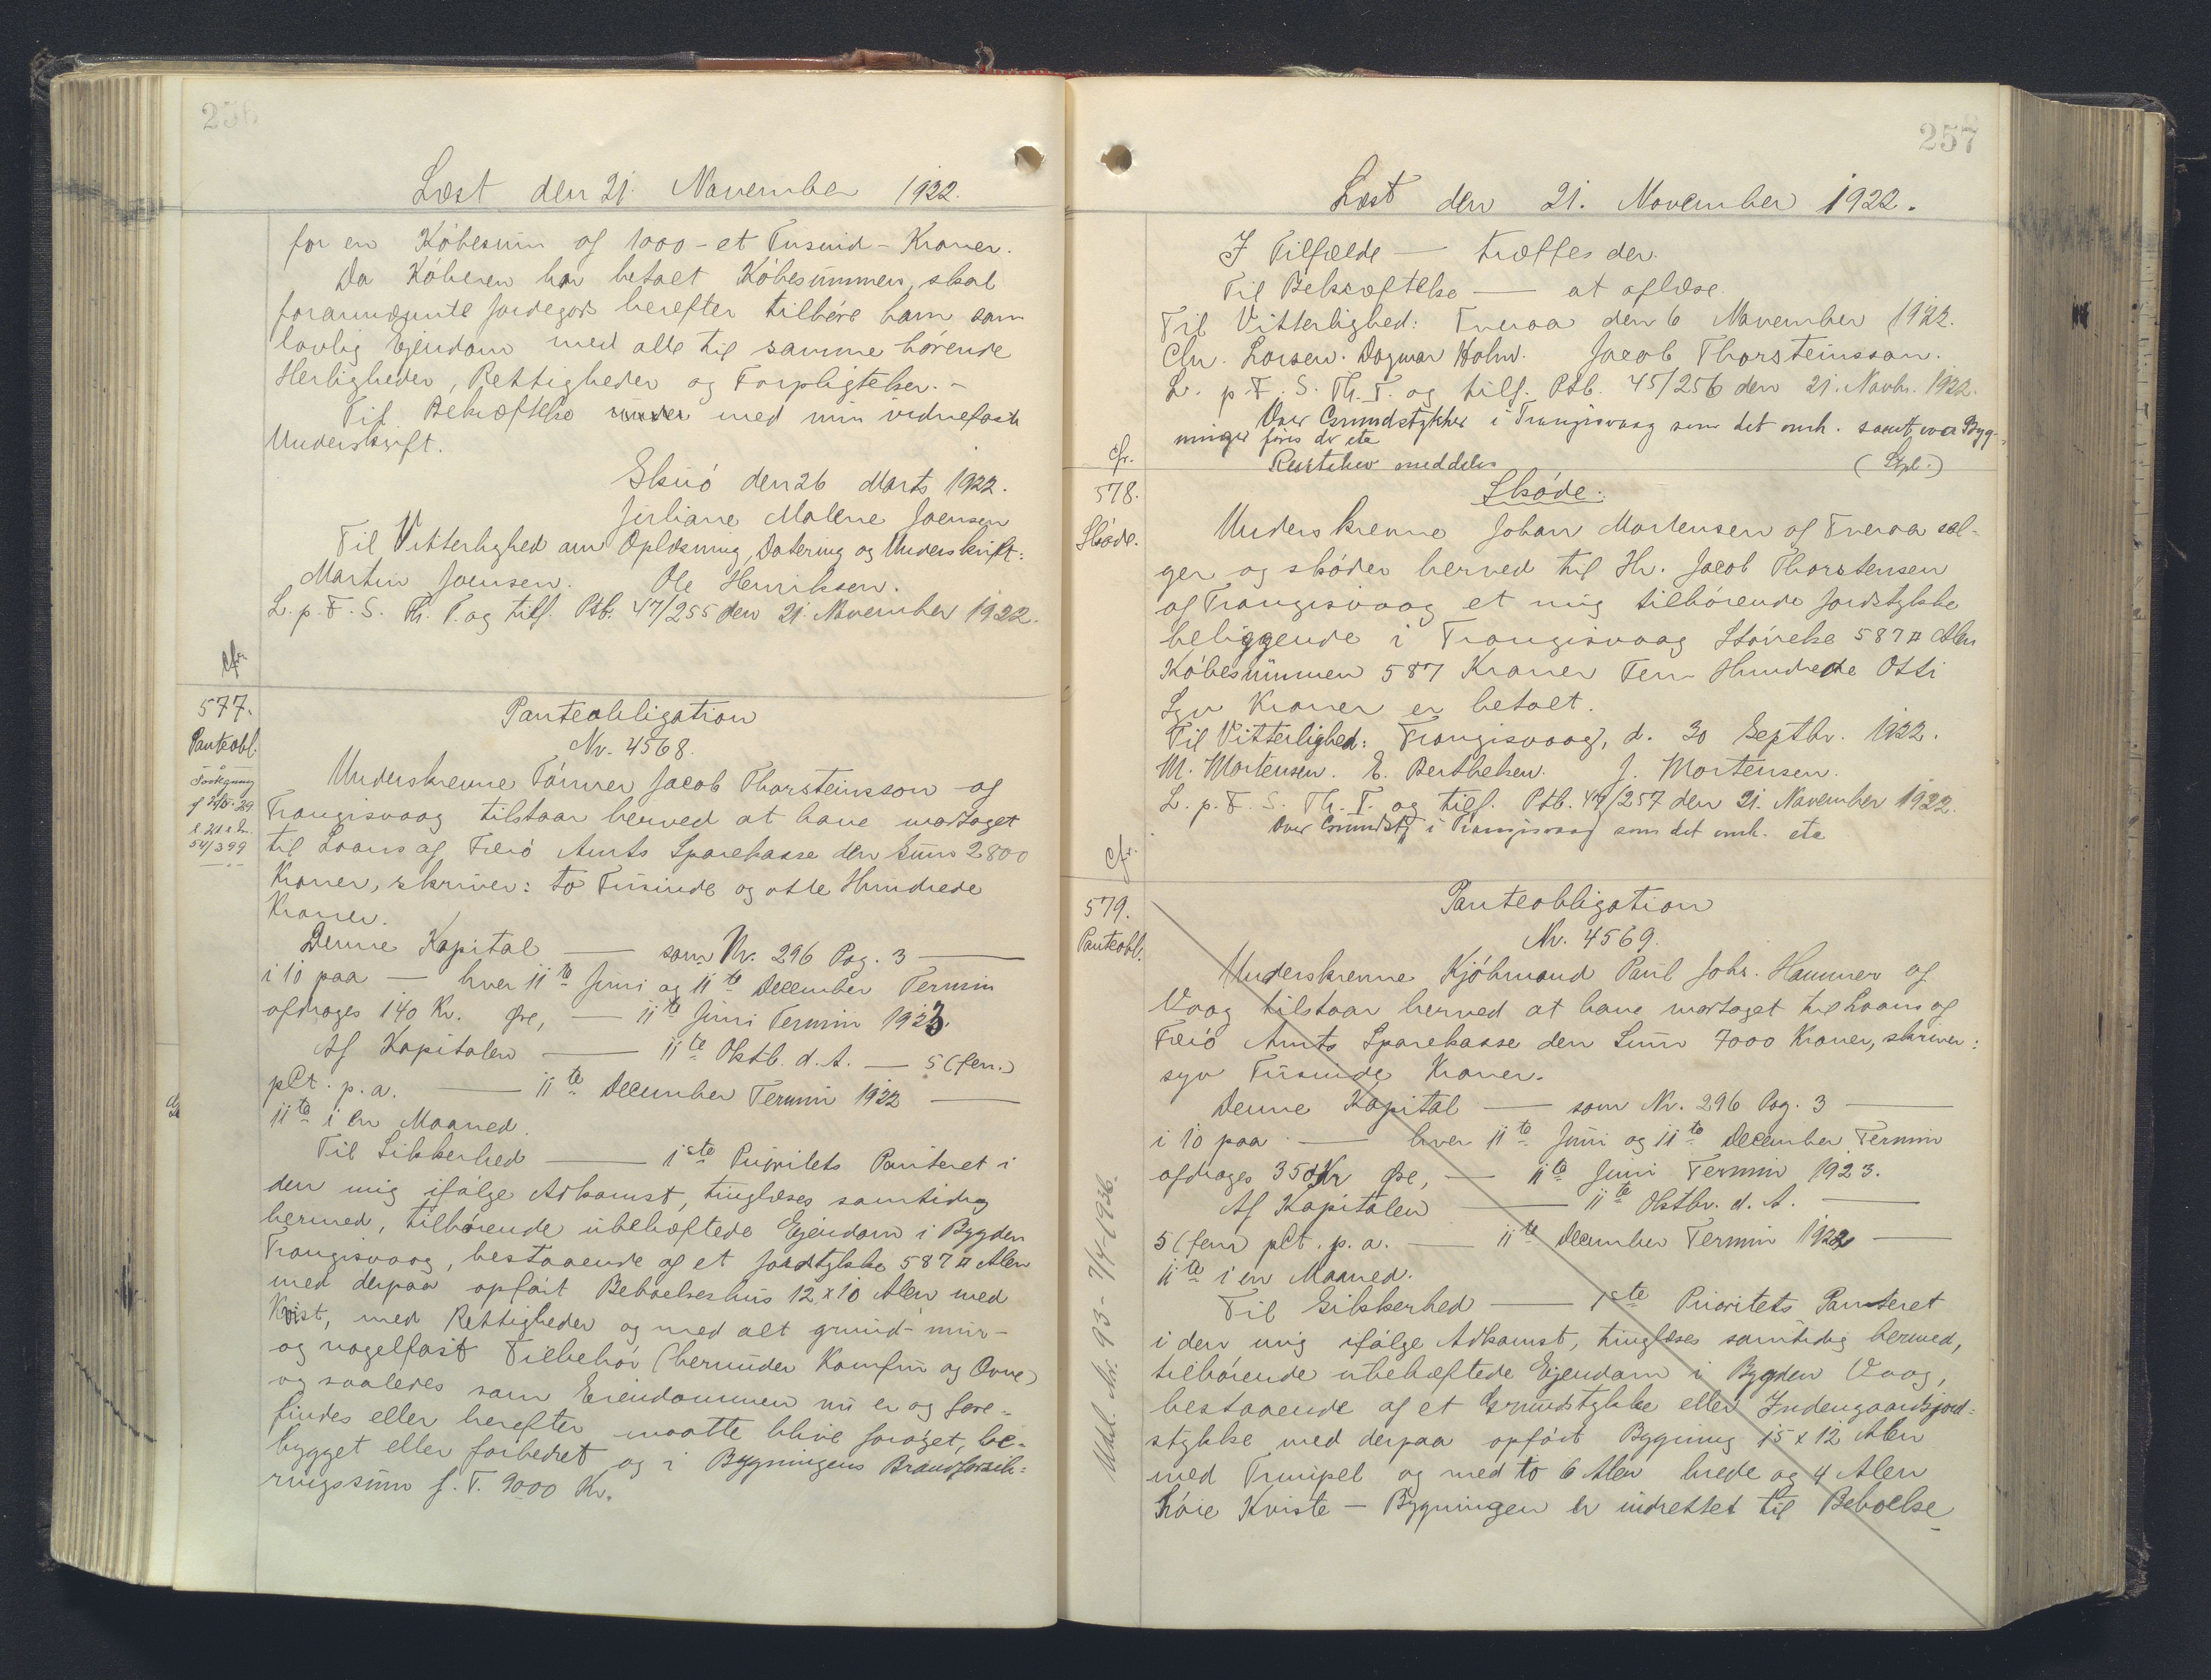 256
Læst den 21. November 1922.
for en Købesum af 1000 - et Tusind - Kroner.
Da Køberen har betalt Købesummen, skal
forannævnte Jordegods herefter tilhøre ham som
lovlig Ejendom med alle til samme hørende
Herligheder, Rettigheder og Forpligtelser. -
Til Bekræftelse med min vidnefaste
Underskrift.
Skuø den 26 Marts 1922.
Juliane Malene Joensen
Til Vitterlighed om Oplæsning, Datering og Underskrift:
Martin Joensen. Ole Henriksen.
L. p. F. S. Th. T. og tilf. Ptb. 47/255 den 21. November 1922.
cfr.
577.
Panteobl.
54/399
Panteobligation
Nr. 4568.
Underskrevne Tømrer Jacob Thorsteinsson af
Trangisvaag tilstaar herved at have modtaget
til Laans af Færø Amts Sparekasse den Sum 2800
Kroner, skriver: to Tusinde og otte Hundrede
Kroner.
Denne Kapital — som Nr. 296 Pag. 3 —
i 10 paa — hver 11te Juni og 11te December Termin
afdrages 140 Kr. Øre, — 11te Juni Termin 1923.
Af Kapitalen — 11te Oktb. d. A. — 5 (fem)
pCt. p. a. — 11te December Termin 1922 —
11te i en Maaned.
Til Sikkerhed — 1ste Prioritets Panteret i
den mig ifølge Adkomst, tinglæses samtidig
hermed, tilhørende ubehæftede Ejendom i Bygden
Trangisvaag, bestaaende af et Jordstykke 587 □ Alen
med derpaa opført Beboelseshus 12 x 10 Alen med
Kvist, med Rettigheder og med alt grund- mur-
og nagelfast Tilbehør (herunder Komfur og Ovne)
og saaledes som Ejendommen nu er og fore-
findes eller herefter maatte blive forøget, be-
bygget eller forbedret og i Bygningens Brandforsik-
ringssum f. T. 9000 Kr.
257
Læst den 21. November 1922.
I Tilfælde — træffes der.
Til Bekræftelse — at aflæse.
Til Vitterlighed: Tveraa den 6 November 1922.
Chr. Larsen. Dagmar Holm. Jacob Thorsteinsson.
L. p. F. S. Th. T. og tilf. Ptb. 45/256 den 21. Novbr. 1922.
Over Grundstykker i Trangisvaag som det omh. samt over Byg-
ninger føres der eta
Retsthev meddeles (Stpl.)
cfr.
578.
Skøde.
Skøde.
Underskrevne Johan Mortensen af Tveraa sæl-
ger og skøder herved til Hr. Jacob Thorstensen
af Trangisvaag et mig tilhørende Jordstykke
beliggende i Trangisvaag Størrelse 587 □ Alen
Købesummen 587 Kroner Fem Hundrede Otti
Syv Kroner er betalt.
Til Vitterlighed: Trangisvaag, d. 30 Septbr. 1922.
M. Mortensen. E. Berthelsen. J. Mortensen.
L. p. F. S. Th. T. og tilf. Ptb. 47/257 den 21. November 1922.
Over Grundst. i Trangisvaag som det omh. eta
cfr.
579.
Panteobl.
Panteobligation
Nr. 4569.
Underskrevne Kjøbmand Paul Johs. Hammer af
Vaag tilstaar herved at have modtaget til Laans af
Færø Amts Sparekasse den Sum 7000 Kroner, skriver:
syv Tusinde Kroner.
Denne Kapital — som Nr. 296 Pag. 3 —
i 10 paa — hver 11te Juni og 11te December Termin
afdrages 350 Kr Øre, — 11te Juni Termin 1923.
Af Kapitalen — 11te Oktbr. d. A. —
5 (fem) pCt. p. a. — 11te December Termin 1922 —
11te i en Maaned.
Til Sikkerhed — 1ste Prioritets Panteret
i den mig ifølge Adkomst, tinglæses samtidig hermed,
tilhørende ubehæftede Ejendom i Bygden Vaag,
bestaaende af et Grundstykke eller Indengaardsjord-
stykke med derpaa opført Bygning 15 x 12 Alen
med Trempel og med to 6 Alen brede og 4 Alen
høie Kviste - Bygningen er indrettet til Beboelse
Udsl. Nr. 93 - 7/4-1936.